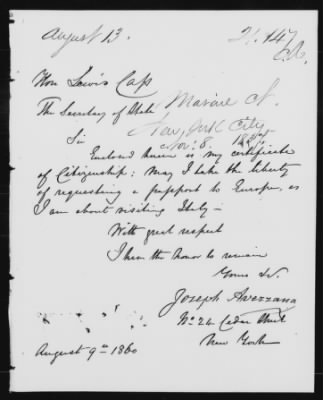 August 13.
21.447
Hon Lewis Cass
The Secretary of State
Marine Ct.
New York City
Nov: 8.
Sir
Enclosed herein is my certificate
of Citizenship: May I take the liberty
of requesting a passport to Europe, as
I am about visiting Italy—
With great respect
I have the honor to remain
Yours &c.
Joseph Avezzana
No 24 Cedar Street
New York
August 9th 1860